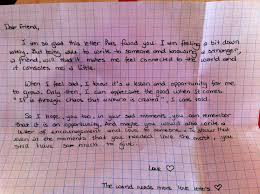 Dear Friend,
I am so glad this letter has found you. I am feeling a bit down
today. But being able to write to someone and knowing a stranger,
a friend, will read it makes me feel connected to the world and it
consoles me a little.
When I feel sad, I know it's a lesson and opportunity for me
to grow. Only then, I can appreciate the good when it comes.
"It is through chaos that universe is created", I was told.
So I hope, you too, in your sad moments you can remember
that it is an opportunity. And maybe you would also write a
letter of encouragement and love to someone. To show that
even at the moments that you needed love the most, you
still have so much to give.
Love ♡
The world needs more love letters ♡